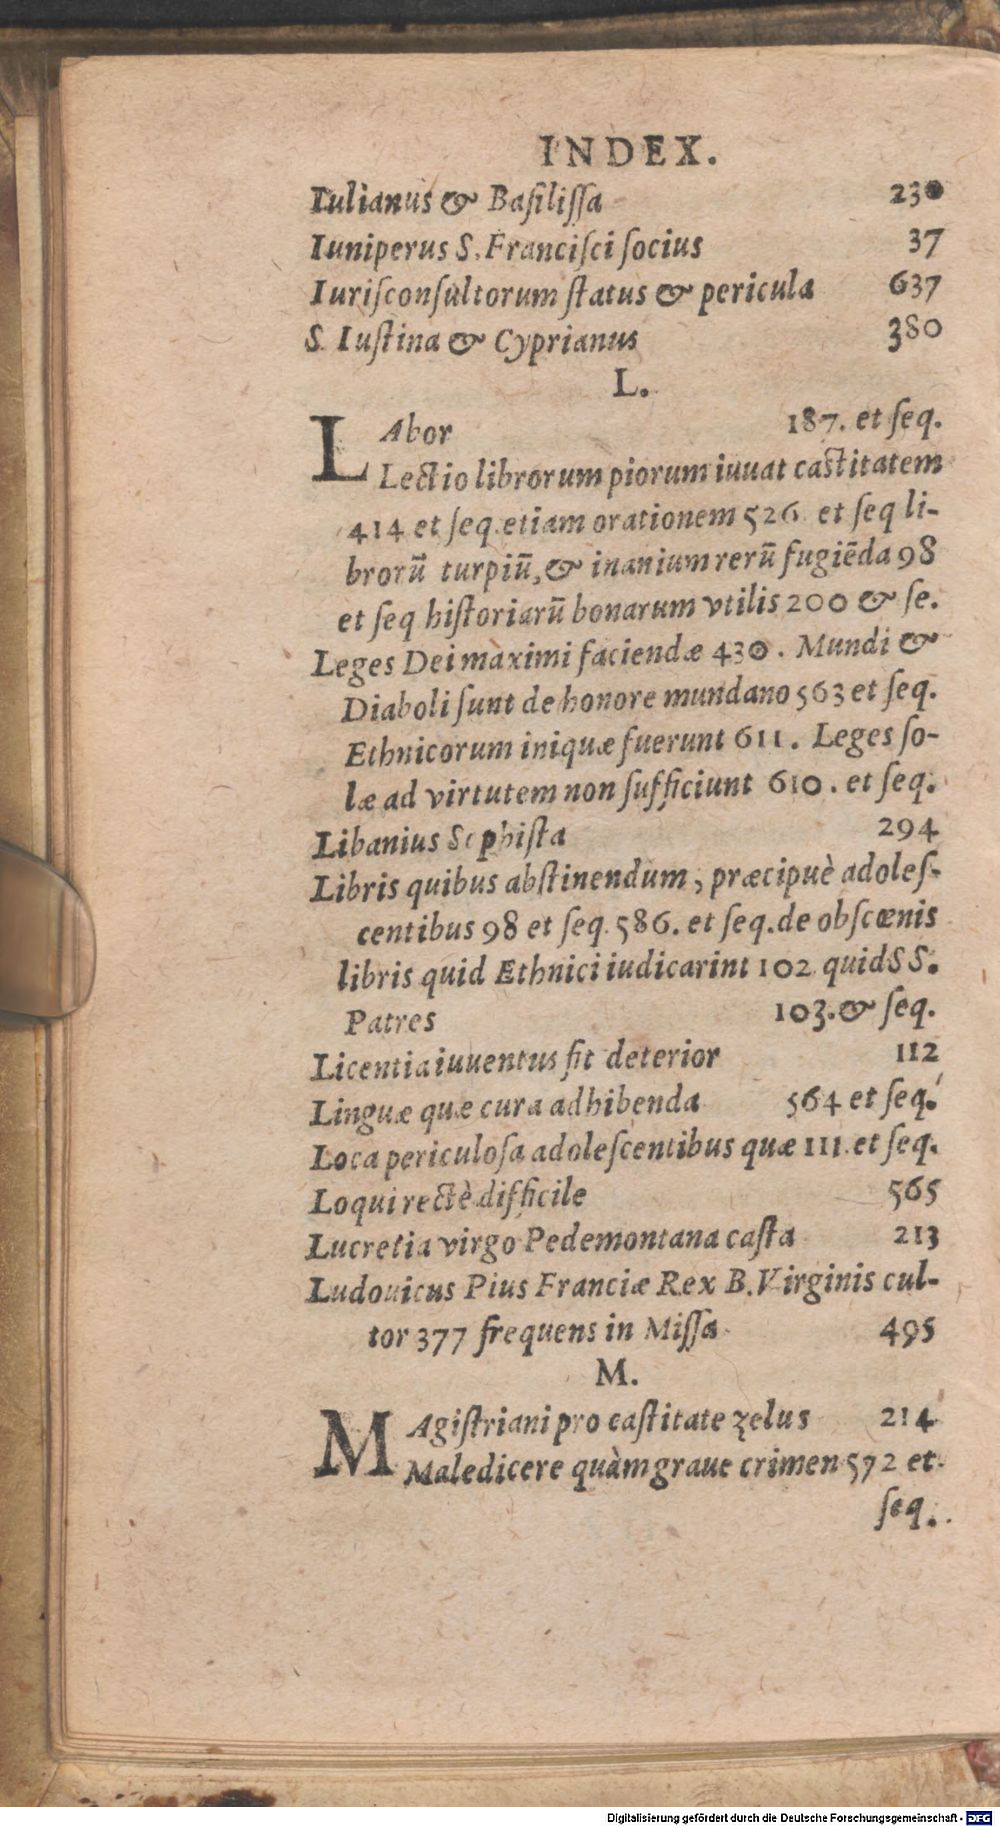 INDEX.
Iulianus & Baſiliſſa 230
Iuniperus S. Franciſci ſocius 37
Iuriſconſultorum ſtatus & pericula 637
S. Iuſtina & Cyprianus 380
L.
LAbor 187. et ſeq.
Lectio librorum piorum iuuat caſtitatem
414 et ſeq. etiam orationem 526 et ſeq li-
brorū turpiū, & inanium rerū fugiēda 98
et ſeq hiſtoriarū bonarum vtilis 200 & ſe.
Leges Dei maximi faciendæ 430. Mundi &
Diaboli ſunt de honore mundano 563 et ſeq.
Ethnicorum iniquæ fuerunt 611. Leges ſo-
læ ad virtutem non ſufficiunt 610. et ſeq.
Libanius Sophiſta 294
Libris quibus abſtinendum, præcipuè adoleſ-
centibus 98 et ſeq. 586. et ſeq. de obſcœnis
libris quid Ethnici iudicarint 102 quid SS.
Patres 103. & ſeq.
Licentia iuuentus fit deterior 112
Linguæ quæ cura adhibenda 564 et ſeq.
Loca periculoſa adoleſcentibus quæ 111. et ſeq.
Loqui rectè difficile 565
Lucretia virgo Pedemontana caſta 213
Ludouicus Pius Franciæ Rex B. Virginis cul-
tor 377 frequens in Miſſa 495
M.
MAgiſtriani pro caſtitate zelus 214
Maledicere quàm graue crimen 572 et
ſeq.
Digitalisierung gefördert durch die Deutsche Forschungsgemeinschaft - DFG